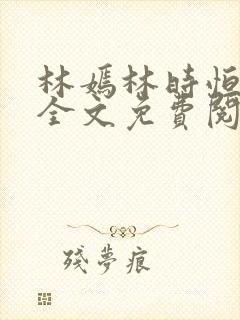 林嫣林時恒
全文免費閱
殘夢痕